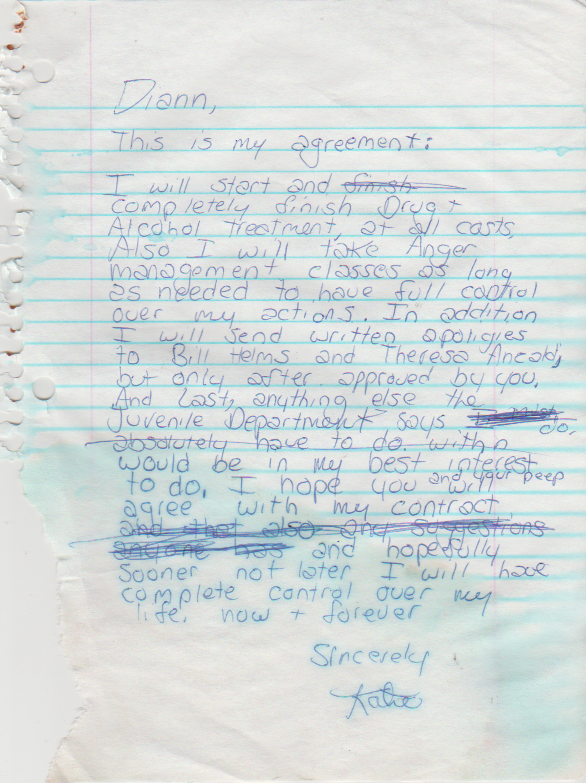 Diann,
This is my agreement:
I will start and finish
completely finish Drug +
Alcohol treatment, at all costs,
Also I will take Anger
management classes as long
as needed to have full control
over my actions. In addition
I will send written apoligies
to Bill Helms and Theresa
but only after approved by you.
And last, anything else the
Juvenile Department says I do.
absolutely have to do. within
would be in my best interest
to do. I hope you and your peep will
agree with my contract
and that also any suggestions
anyone has and hopefully
sooner not later I will have
complete control over my
life. now + forever
Sincerely
Katie